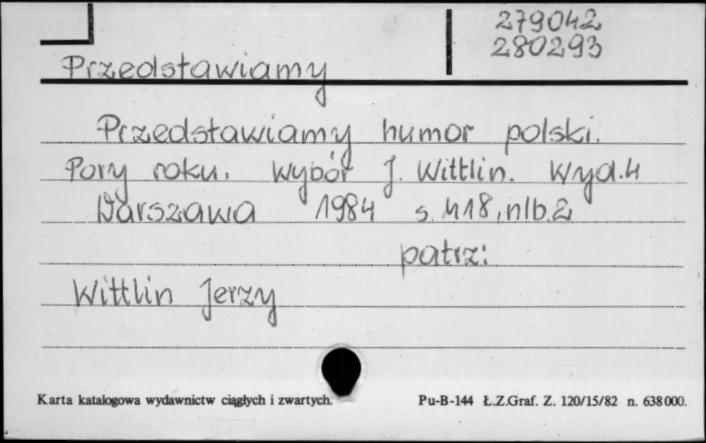 279042
280293
Przedstawiamy
Przedstawiamy humor polski.
Pory roku. Wybór J. Wittlin. Wyd. 4
Warszawa 1984 s. 418, nlb. 2
patrz:
Wittlin Jerzy
Karta katalogowa wydawnictw ciągłych i zwartych.
Pu-B-144 Ł.Z.Graf. Z. 120/15/82 n. 638 000.